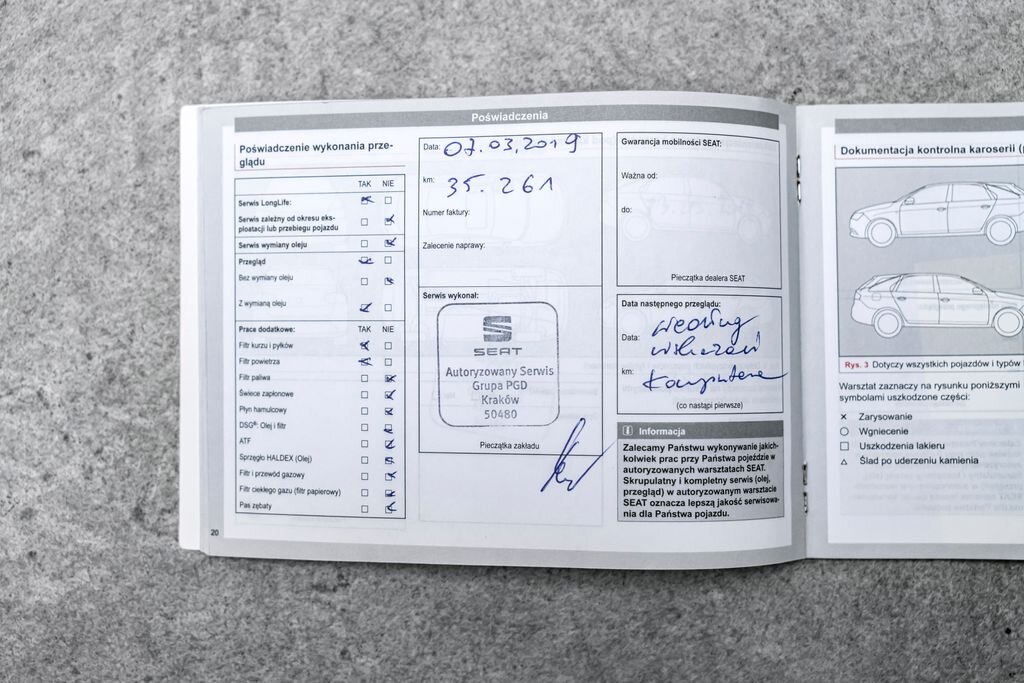 Poświadczenia
Poświadczenie wykonania prze-
glądu
TAK NIE
Serwis LongLife:
Serwis zależny od okresu eks-
ploatacji lub przebiegu pojazdu
Serwis wymiany oleju
Przegląd
Bez wymiany oleju
Z wymianą oleju
Prace dodatkowe: TAK NIE
Filtr kurzu i pyłków
Filtr powietrza
Filtr paliwa
Świece zapłonowe
Płyn hamulcowy
DSG®: Olej i filtr
ATF
Sprzęgło HALDEX (Olej)
Filtr i przewód gazowy
Filtr ciekłego gazu (filtr papierowy)
Pas zębaty
20
Data: 07.03.2019
km: 35.261
Numer faktury:
Zalecenie naprawy:
Serwis wykonał:
SEAT
Autoryzowany Serwis
Grupa PGD
Kraków
50480
Pieczątka zakładu
Gwarancja mobilności SEAT:
Ważna od:
do:
Pieczątka dealera SEAT
Data następnego przeglądu:
Data: według
wskazań
km: komputera
(co nastąpi pierwsze)
i Informacja
Zalecamy Państwu wykonywanie jakich-
kolwiek prac przy Państwa pojeździe w
autoryzowanych warsztatach SEAT.
Skrupulatny i kompletny serwis (olej,
przegląd) w autoryzowanym warsztacie
SEAT oznacza lepszą jakość serwisowa-
nia dla Państwa pojazdu.
Dokumentacja kontrolna karoserii (p
Rys. 3 Dotyczy wszystkich pojazdów i typów
Warsztat zaznaczy na rysunku poniższymi
symbolami uszkodzone części:
× Zarysowanie
○ Wgniecenie
□ Uszkodzenia lakieru
△ Ślad po uderzeniu kamienia